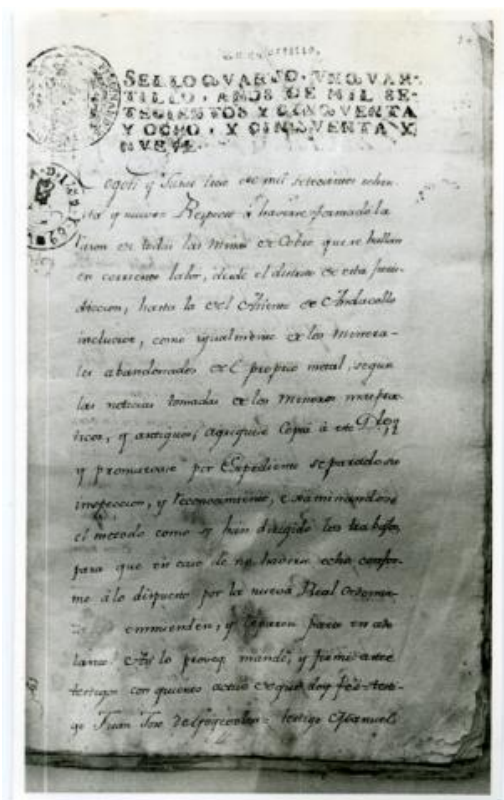 SELLO QVARTO, VN QVAR-
TILLO, AÑOS DE MIL SE-
TECIENTOS Y CINQVENTA
Y OCHO, Y CINQVENTA Y
NVEVE.
y Junio tres de mil setecientos ochen-
ta y nueve Respecto á haverse formado la
razon de todas las Minas de Cobre que se hallan
en corriente labor, desde el distrito de esta juris-
diccion, hasta la del Asiento de Andacollo
inclusive, como igualmente de los Minera-
les abandonados del proprio metal, segun
las noticias tomadas de los Mineros mas prac-
ticos, y antiguos; agreguese Copia á este
y promuevase por Expediente separado su
inspeccion, y reconocimiento, examinandose
el metodo como se han dirigido los trabajos,
para que en caso de no haverse echo confor-
me á lo dispuesto por la nueva Real Ordenan-
emmienden, y reparen para en ade-
lante. Asi lo provey, mandé, y firmé ante
testigos con quienes actuo de que doy fee = testi-
go Juan Jose = testigo Manuel